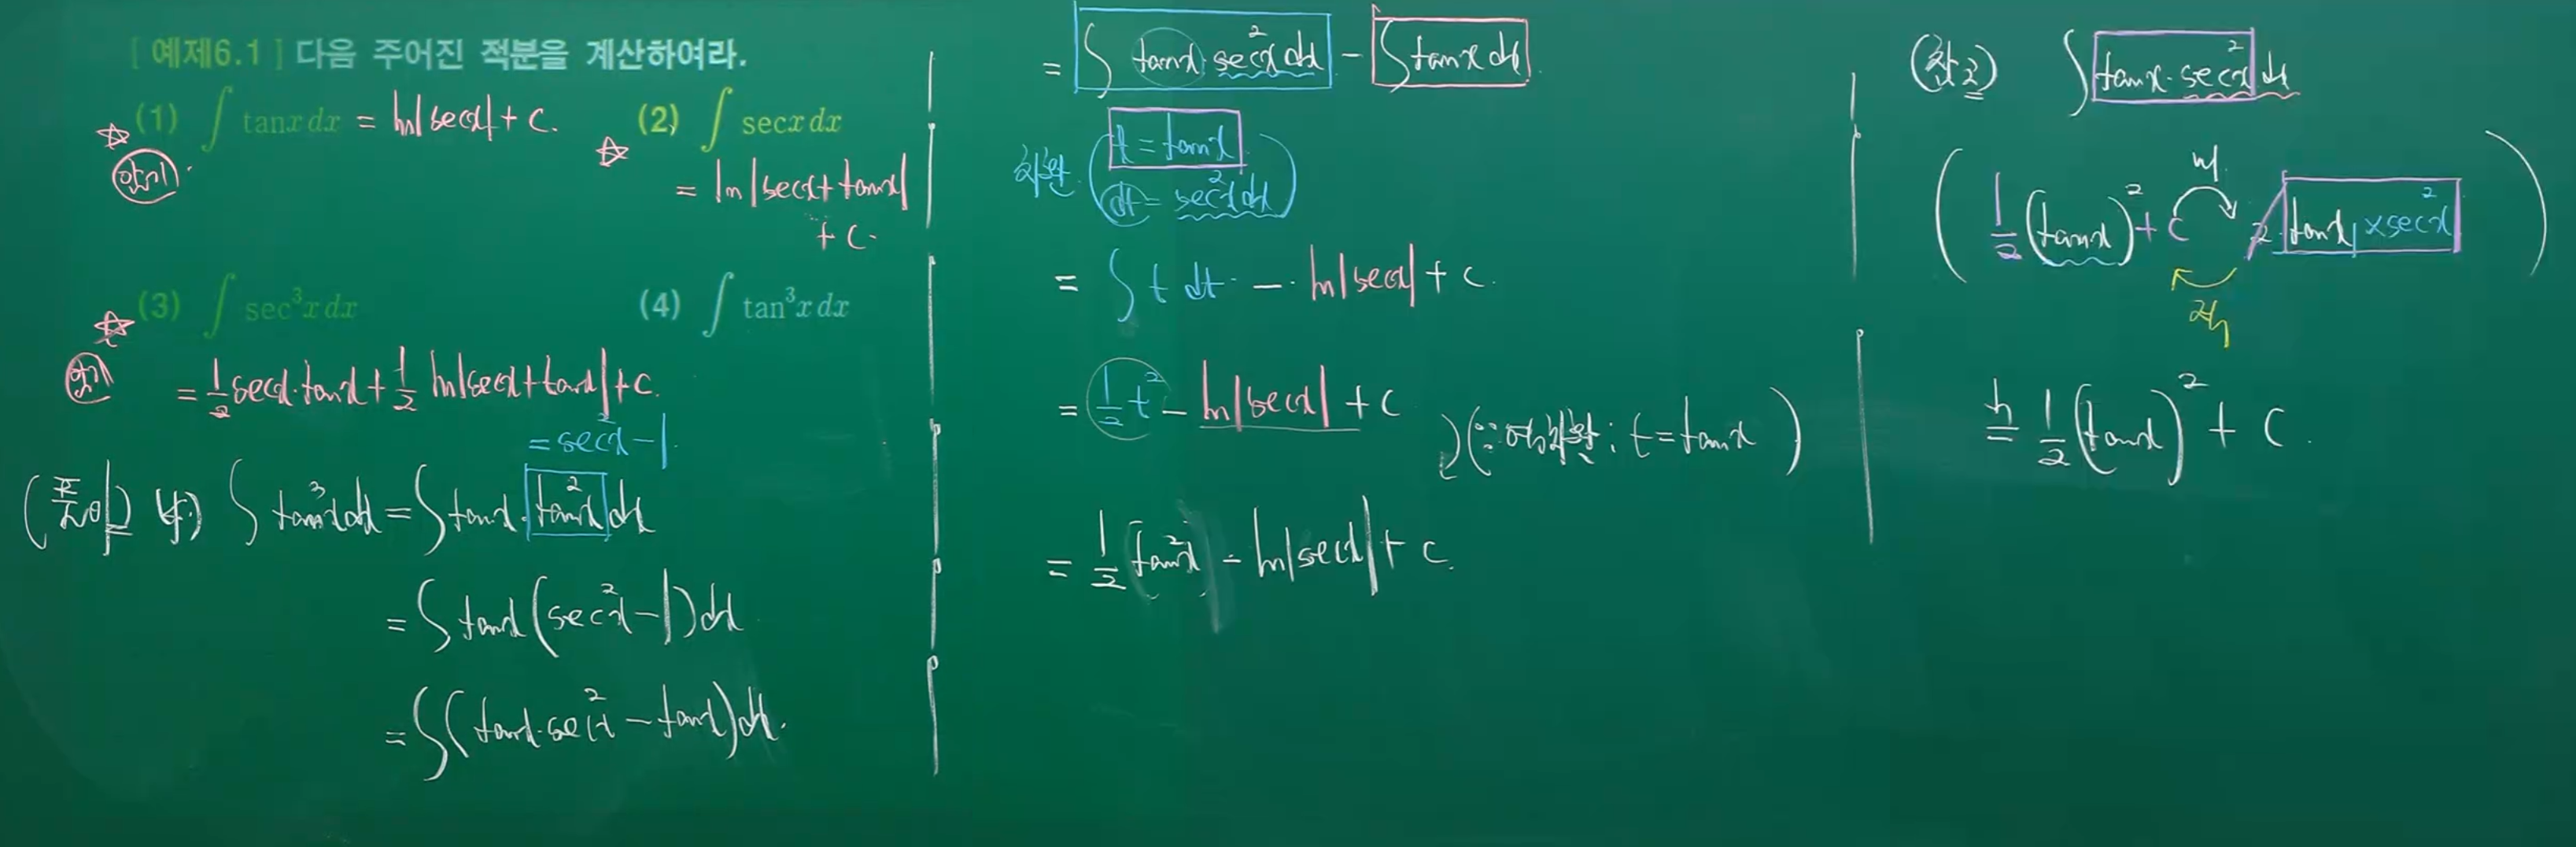 [ 예제6.1 ] 다음 주어진 적분을 계산하여라.
(1) ∫ tanx dx = ln|secx| + C.
암기
(2) ∫ secx dx
= ln|secx + tanx|
+ C.
(3) ∫ sec³x dx
(4) ∫ tan³x dx
암기
= 1/2 secx·tanx + 1/2 ln|secx + tanx| + C.
= sec²x - 1
(풀이) 4) ∫ tan³x dx = ∫ tanx · tan²x dx
= ∫ tanx (sec²x - 1) dx
= ∫ (tanx·sec²x - tanx) dx.
= ∫ tanx · sec²x dx - ∫ tanx dx
치환 ( t = tanx
dt = sec²x dx )
= ∫ t dt - ln|secx| + C.
= 1/2 t² - ln|secx| + C
(∵ 역치환 : t = tanx )
= 1/2 tan²x - ln|secx| + C.
(참2) ∫ tanx · sec²x dx
( 1/2 (tanx)² + C 미. 2·tanx × sec²x )
적
적= 1/2 (tanx)² + C.